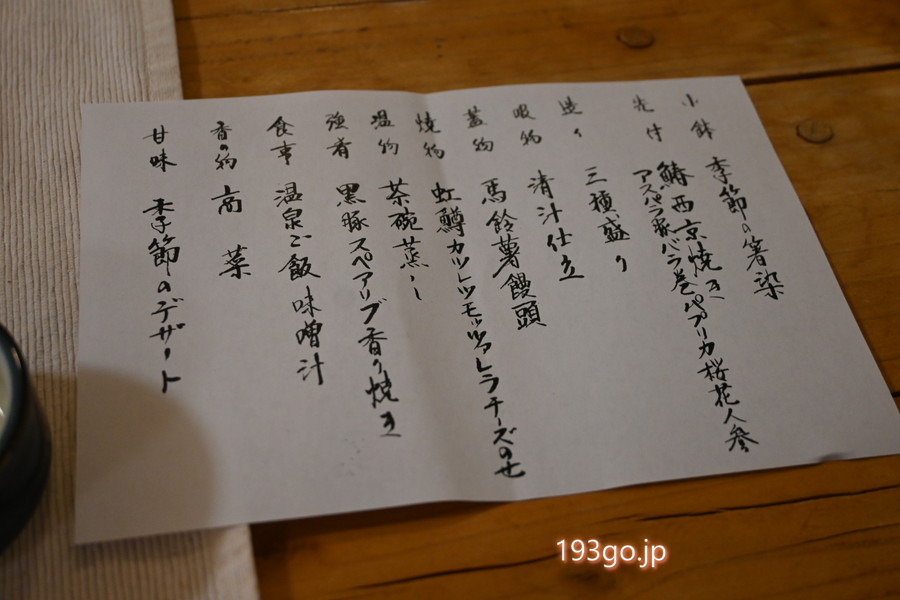 小鉢 季節の箸染
先付 鰆西京焼き
アスパラ豚バラ巻パプリカ桜花人参
造り 三種盛り
吸物 清汁仕立
蓋物 馬鈴薯饅頭
焼物 虹鱒カツレツモッツァレラチーズのせ
温物 茶碗蒸し
強肴 黒豚スペアリブ香り焼き
食事 温泉ご飯 味噌汁
香の物 高菜
甘味 季節のデザート
193go.jp